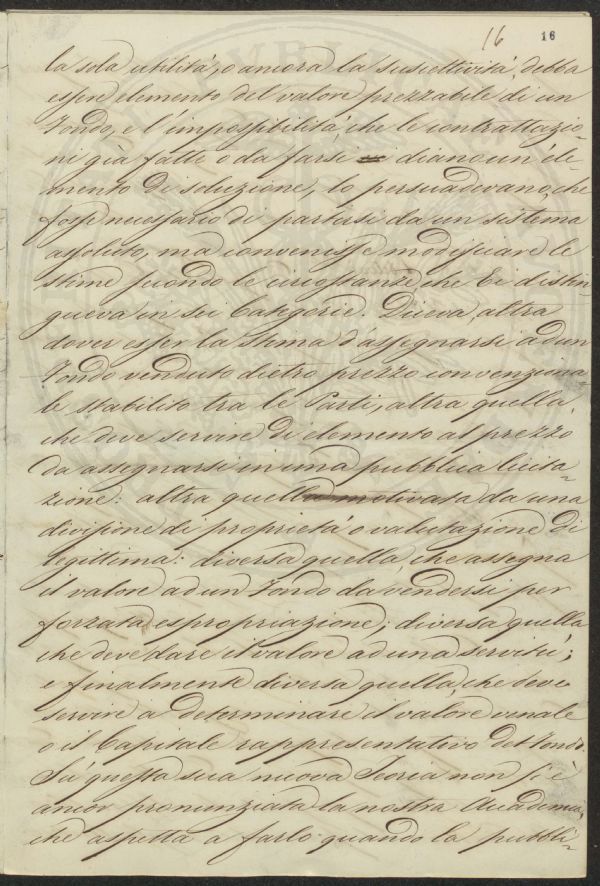 16 16
la sola utilità, o ancora la suscettività, debba
essere elemento del valore prezzabile di un
Fondo, e l'impossibilità che le contrattazio-
ni già fatte o da farsi diano un ele-
mento di soluzione, lo persuadevano, che
fosse necessario di partirsi da un sistema
assoluto, ma convenisse modificare le
stime secondo le circostanze, che Ei distin-
gueva in sei Categorie. Diceva, altra
dover esser la stima d'assegnarsi ad un
Fondo venduto dietro prezzo convenziona-
le stabilito tra le Parti, altra quella,
che deve servire di elemento al prezzo
da assegnarsi in una pubblica licita-
zione: altra quella motivata da una
divisione di proprietà o valutazione di
legittima: diversa quella, che assegna
il valore ad un Fondo da vendersi per
forzata espropriazione; diversa quella
che deve dare il valore ad una servitù;
e finalmente diversa quella, che deve
servire a determinare il valore venale
o il Capitale rappresentativo del Fondo.
Su questa sua nuova Teoria non si è
ancor pronunziata la nostra Accademia,
che aspetta a farlo quando la pubbli-